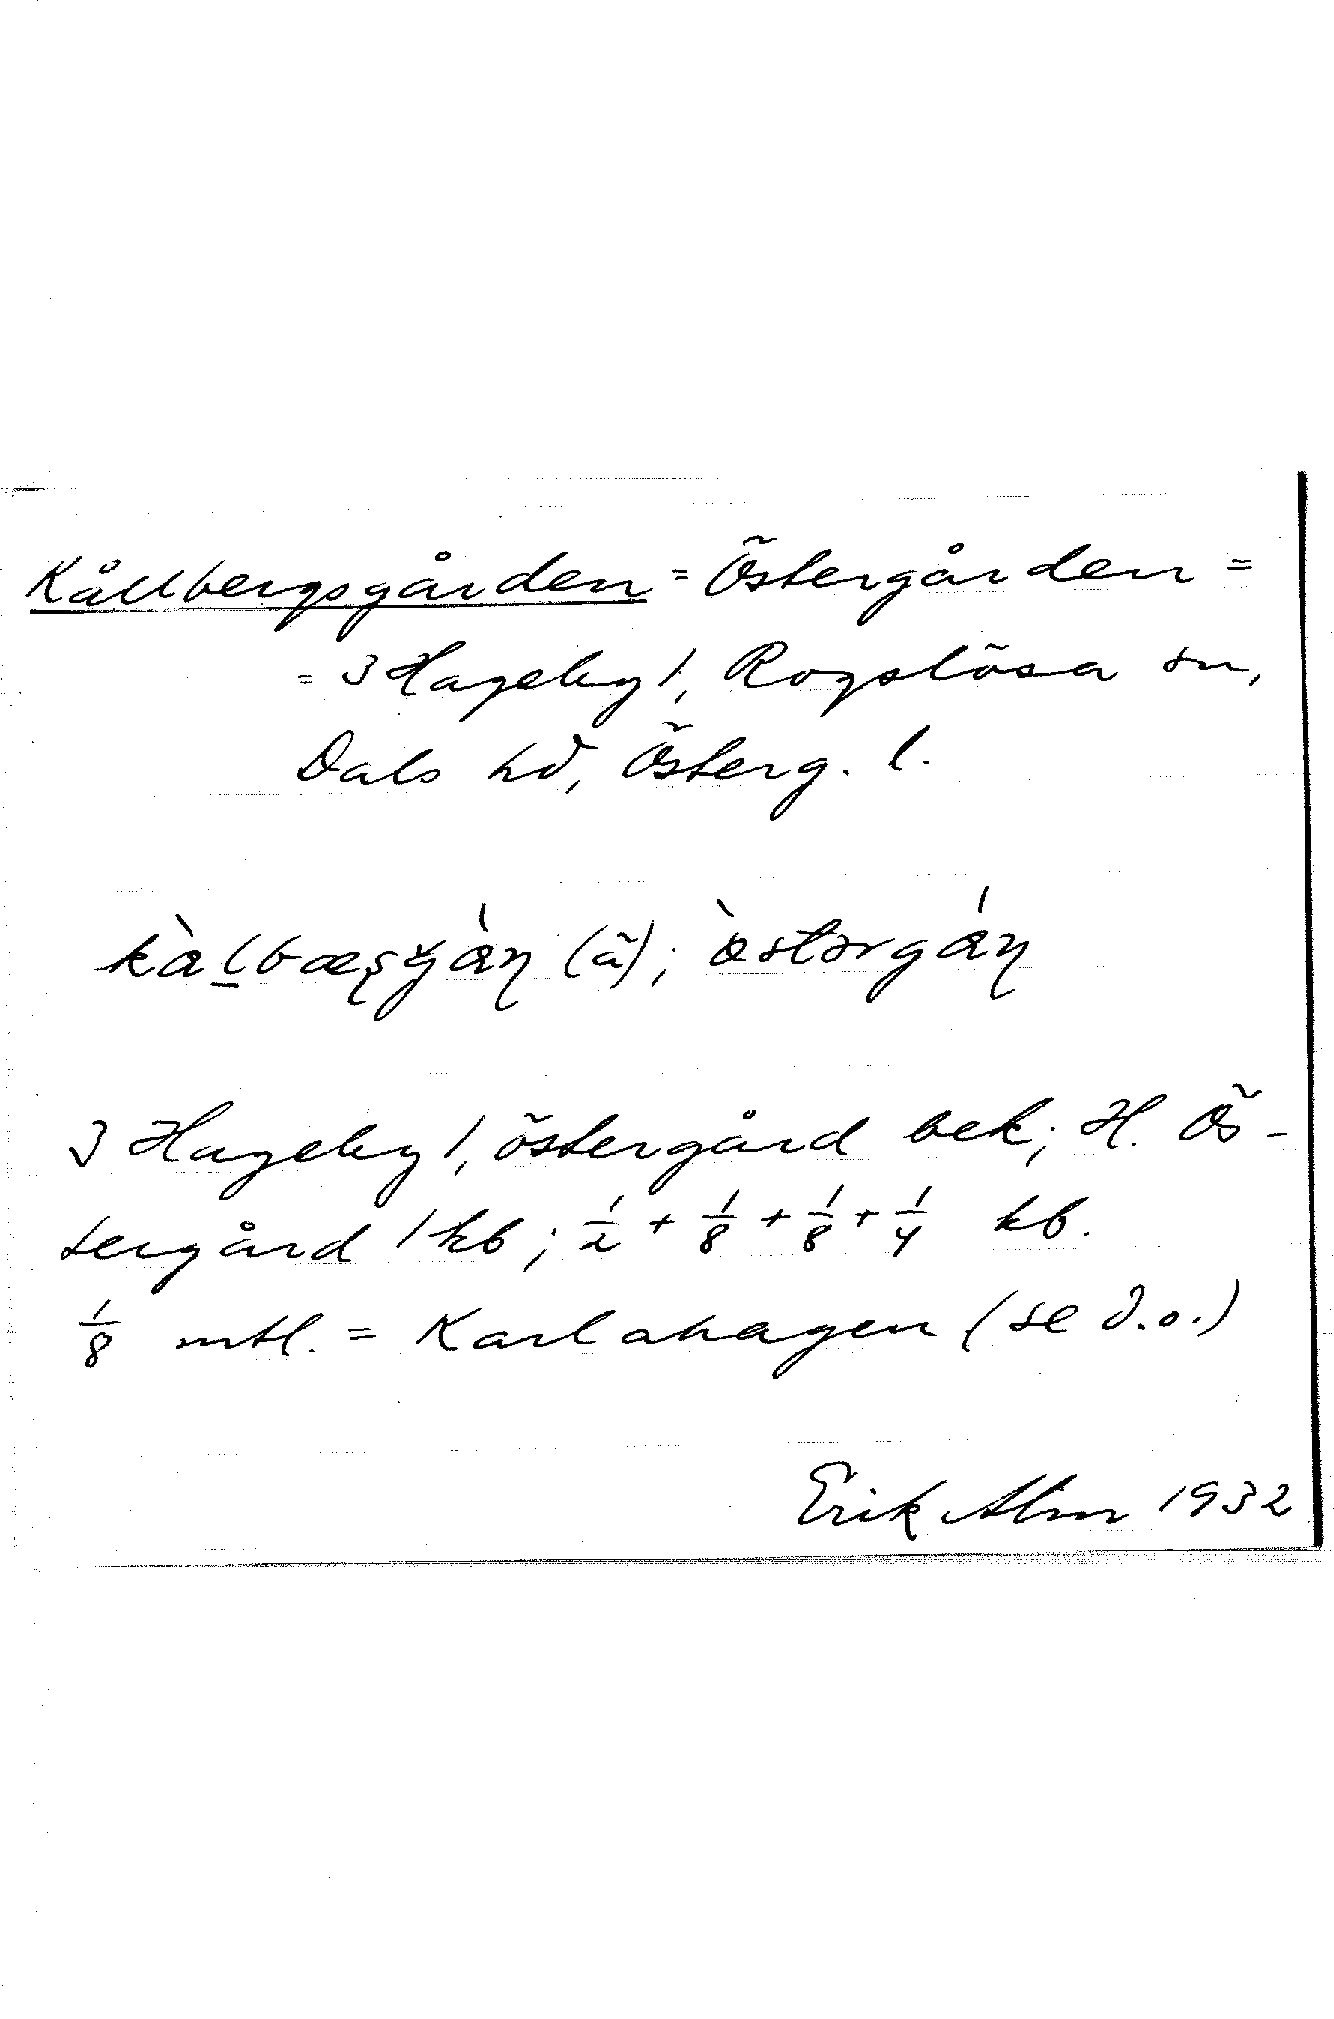 Kållbergsgården = Östergården =
= 3 Hageby 1, Rogslösa sn,
Dals hd, Österg. l.
kàlbæşgán (ã); östərgán
3 Hageby 1, östergård bek; H. Ös-
tergård 1 kb; 1/2 + 1/8 + 1/8 + 1/4 kb.
1/8 mtl. = Karlahagen (se d.o.)
Erik Alm 1932